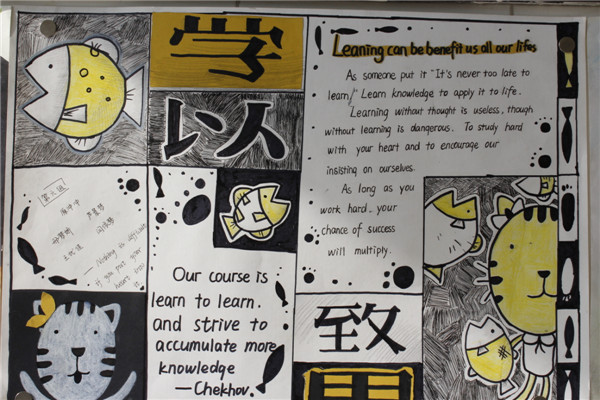 学
以
Leaning can be benefit us all our lifes
As someone put it "It's never too late to
learn," Learn knowledge to apply it to life.
Learning without thought is useless, though
without learning is dangerous. To study hard
with your heart and to encourage our
insisting on ourselves.
As long as you
work hard, your
chance of success
will multiply.
— Nothing is
if you put your
heart into
it
Our course is
learn to learn.
and strive to
accumulate more
knowledge
—Chekhov.
致